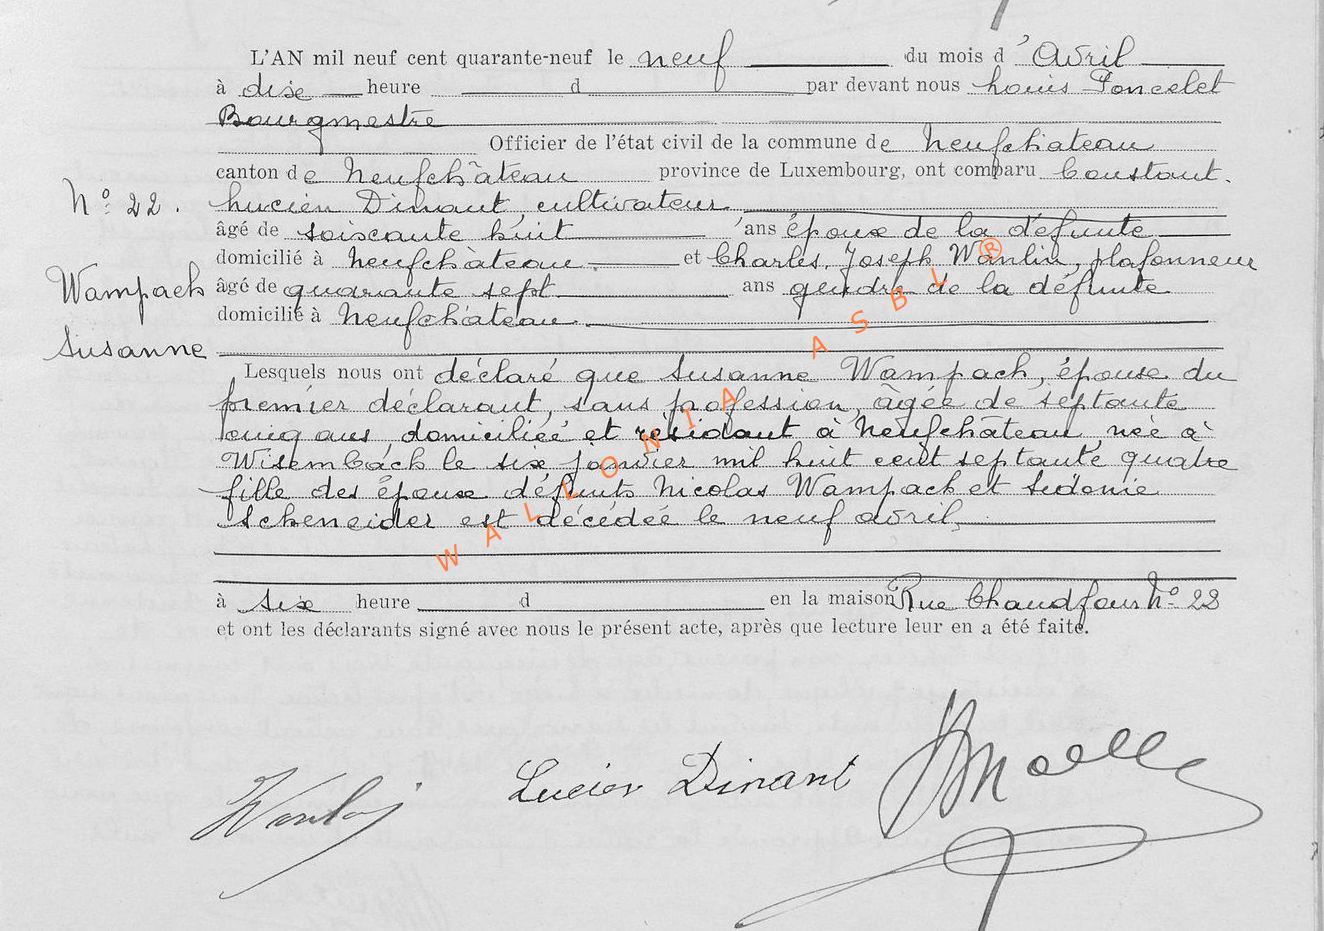 L'AN mil neuf cent quarante-neuf le neuf du mois d'Avril
à dix heure d par devant nous Louis Poncelet
Bourgmestre
Officier de l'état civil de la commune de Neufchateau
canton de Neufchâteau province de Luxembourg, ont comparu Constant.
N° 22. Lucien Dinant, cultivateur
âgé de soixante huit ans époux de la défunte
domicilié à Neufchâteau. et Charles, Joseph Wanlin, plafonneur
Wampach âgé de quarante sept ans gendre de la défunte
domicilié à Neufchâteau.
Susanne
Lesquels nous ont déclaré que Susanne Wampach, épouse du
premier déclarant, sans profession, âgée de septante
cinq ans domiciliée et résidant à Neufchâteau, née à
Wisembach le six janvier mil huit cent septante quatre
fille des époux défunts Nicolas Wampach et Sidonie
Scheneider est décédée le neuf avril,
à six heure d en la maison Rue Chaudfour N° 22
et ont les déclarants signé avec nous le présent acte, après que lecture leur en a été faite.
Lucien Dinant
WALLONIA ASBL ®